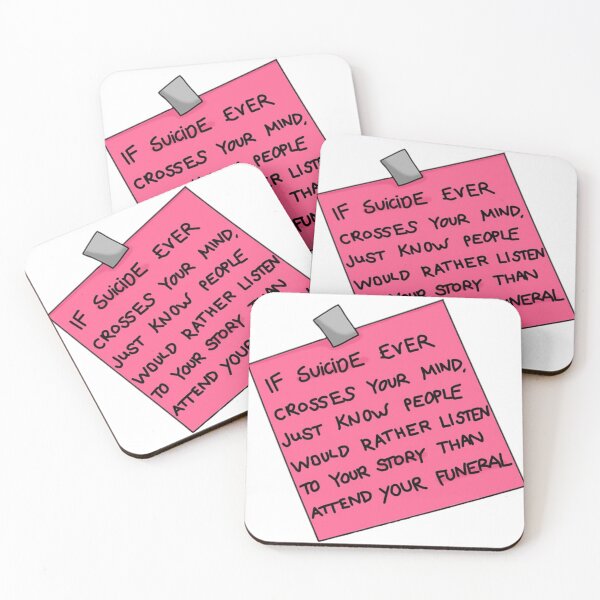 IF SUICIDE EVER
CROSSES YOUR MIND,
PEOPLE
THAN
IF SUICIDE EVER
CROSSES YOUR MIND,
JUST KNOW PEOPLE
WOULD RATHER LISTEN
YOUR STORY THAN
FUNERAL
IF SUICIDE EVER
CROSSES YOUR MIND,
JUST KNOW PEOPLE
WOULD RATHER LISTEN
TO YOUR STORY THAN
ATTEND YOUR
IF SUICIDE EVER
CROSSES YOUR MIND,
JUST KNOW PEOPLE
WOULD RATHER LISTEN
TO YOUR STORY THAN
ATTEND YOUR FUNERAL